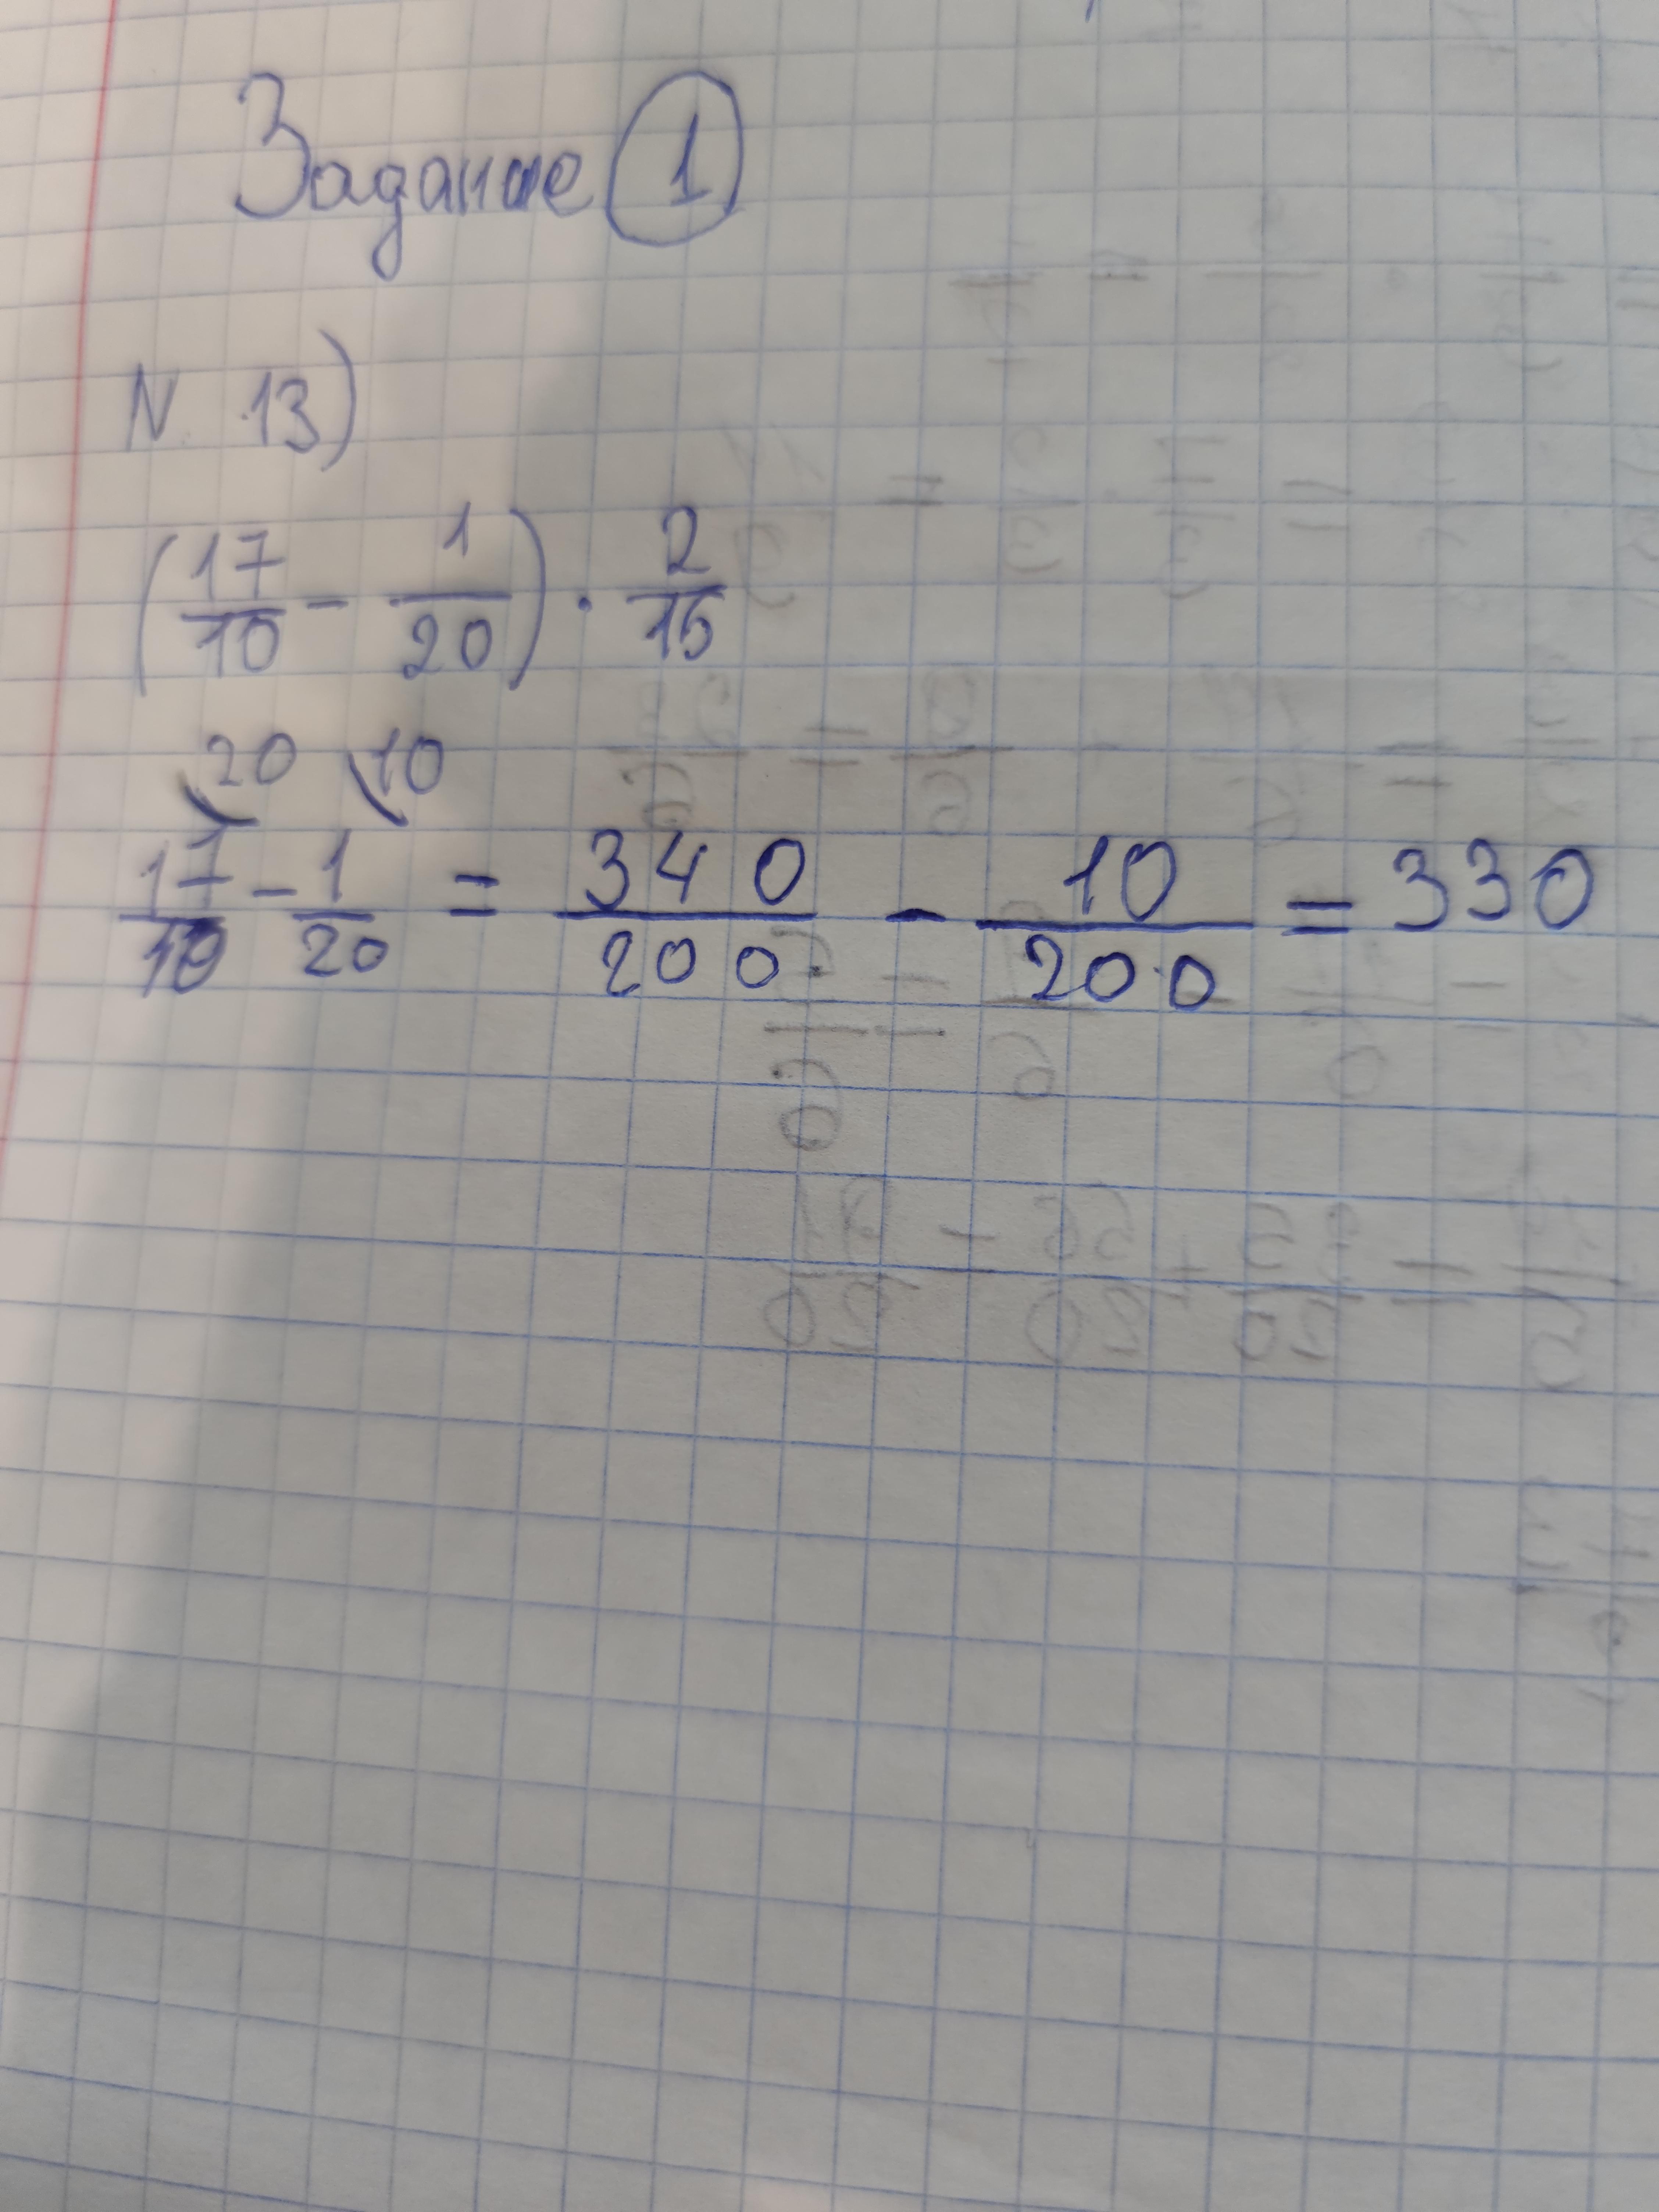 Задание 1
N. 13)
(17/10 - 1/20) · 2/15
20 10
17/10 - 1/20 = 340/200 - 10/200 = 330